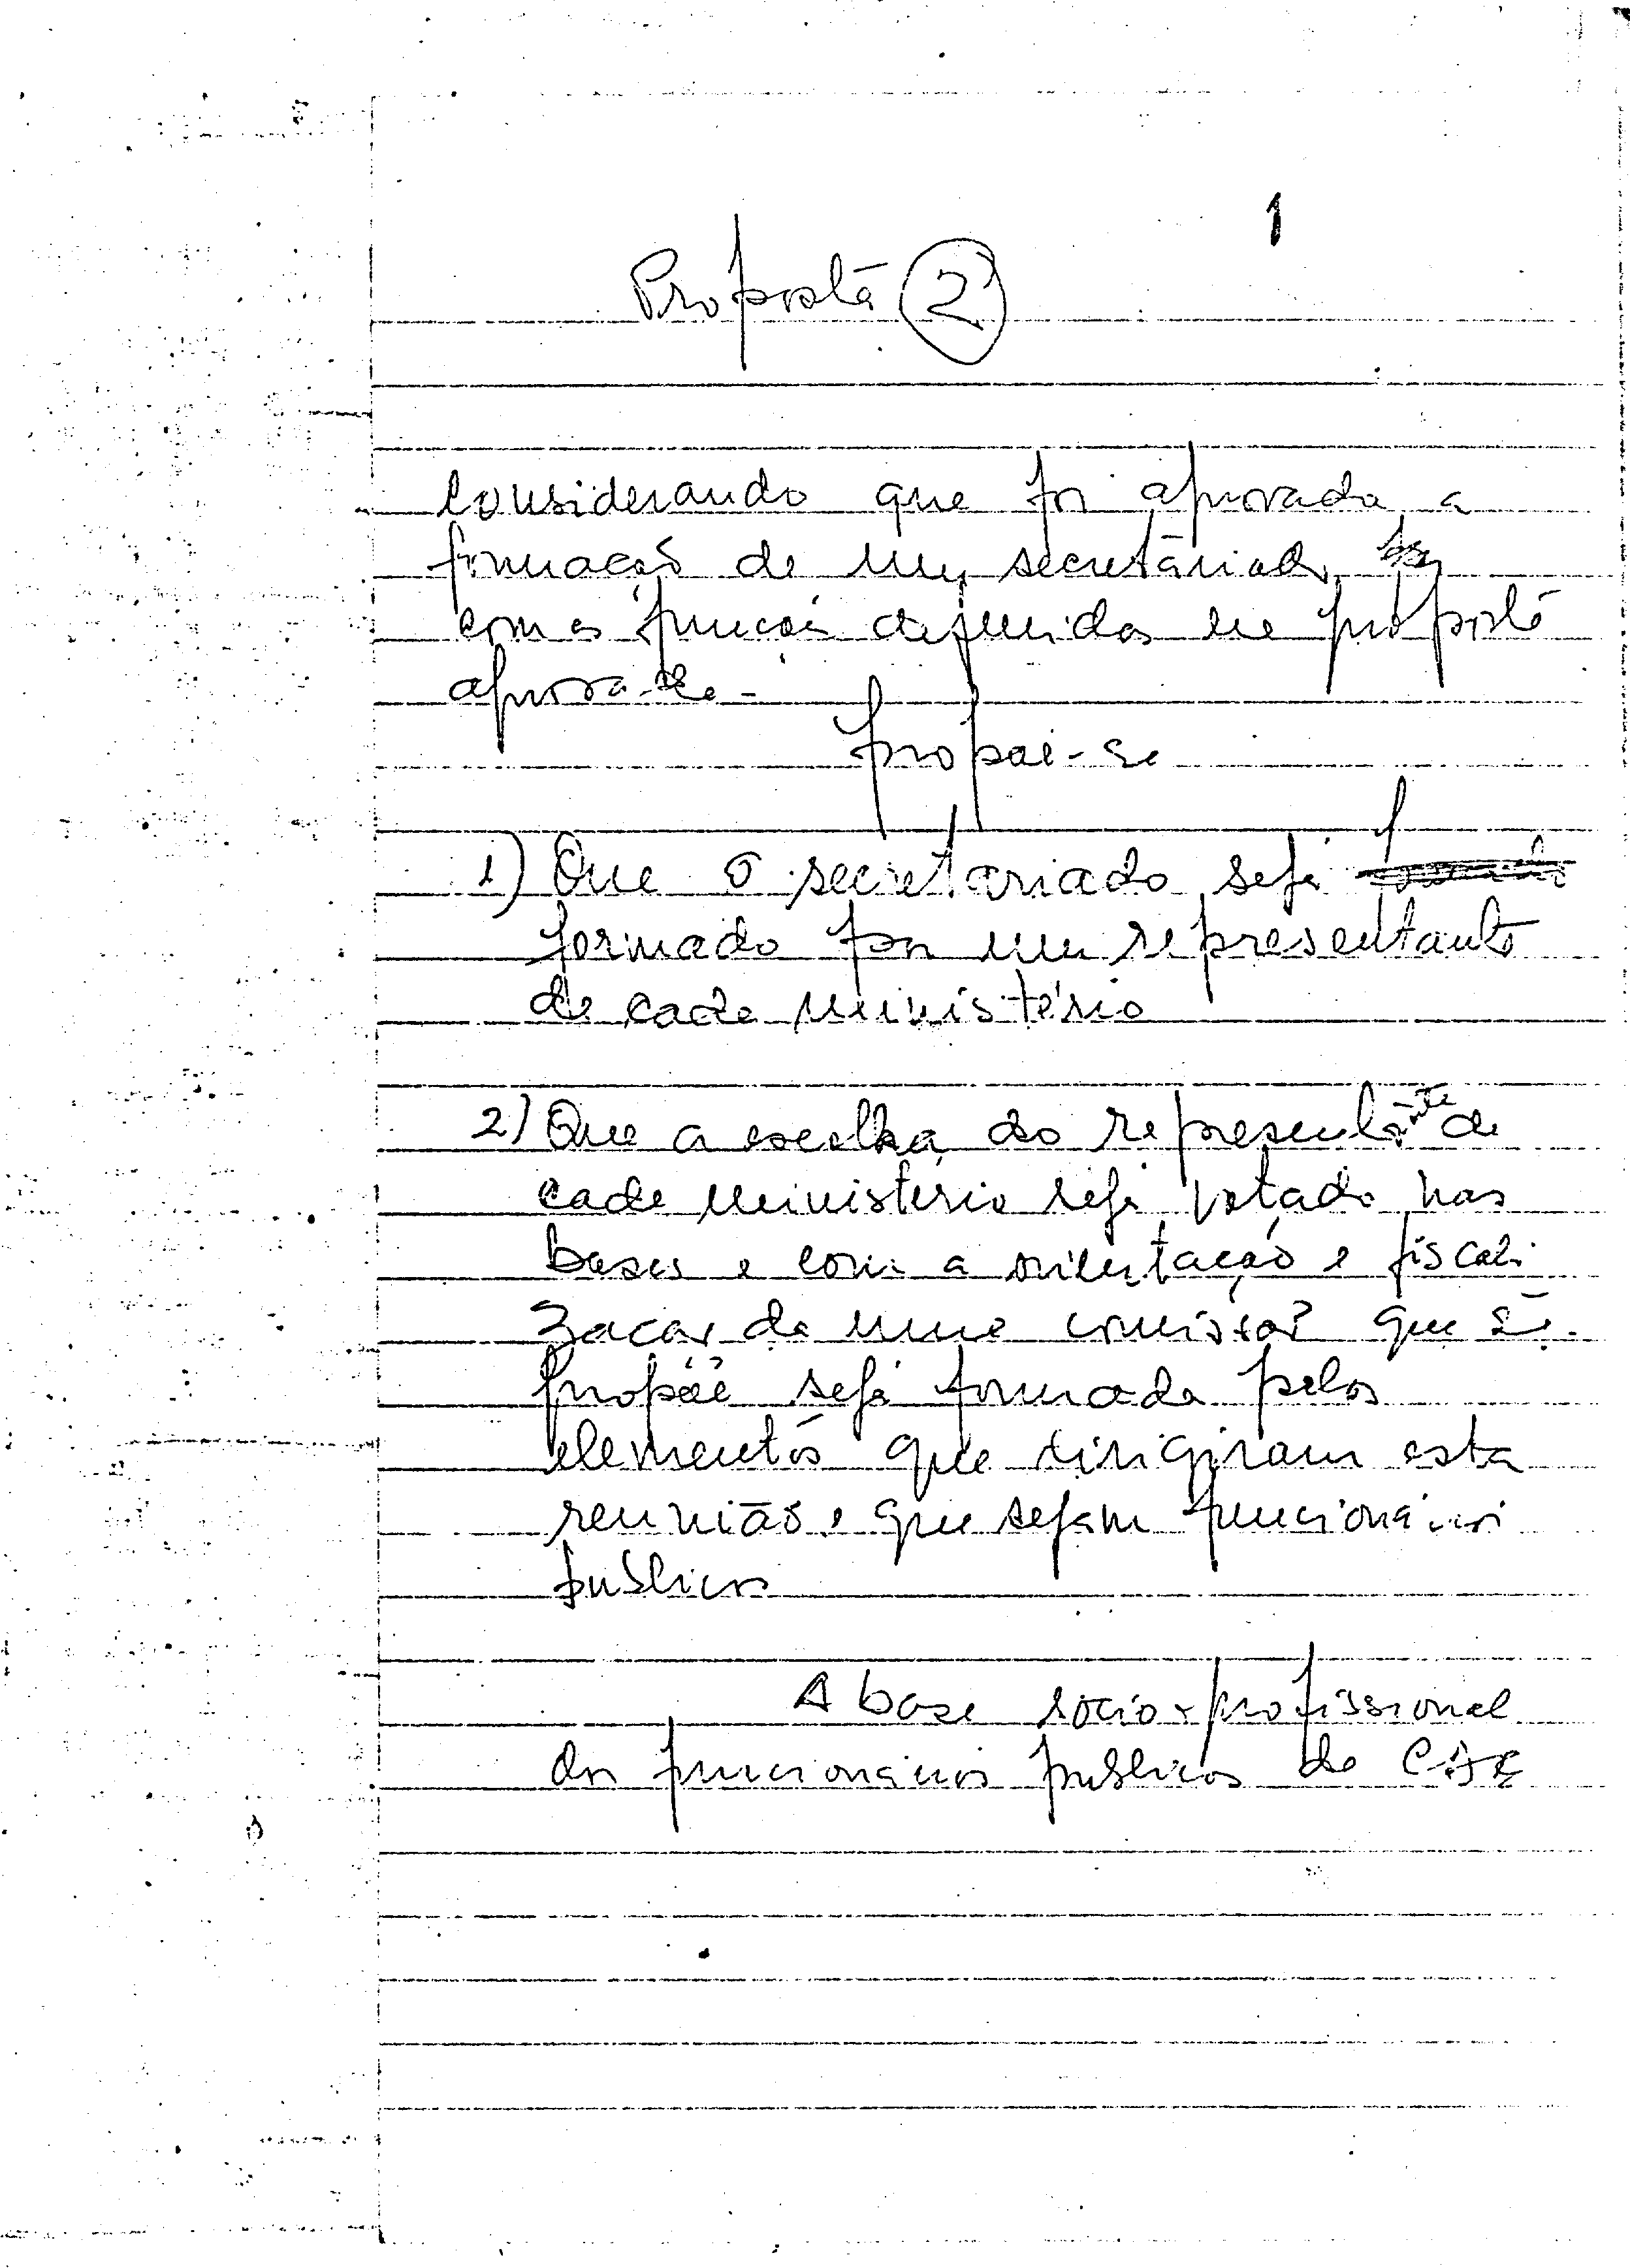 1
Proposta 2
Considerando que foi aprovada a
formação de um secretáriado
com as funções definidas na proposta
aprovada -
propõe-se
1) Que o secretariado seja
formado por um representante
de cada ministério
2) Que a escolha do representante de
cada ministério seja votado nas
bases e com a orientação e fiscali
zação de uma comissão que se
propõe seja formada pelos
elementos que dirigiram esta
reunião e que sejam funcionários
publicos
A base socio-profissional
dos funcionários publicos do